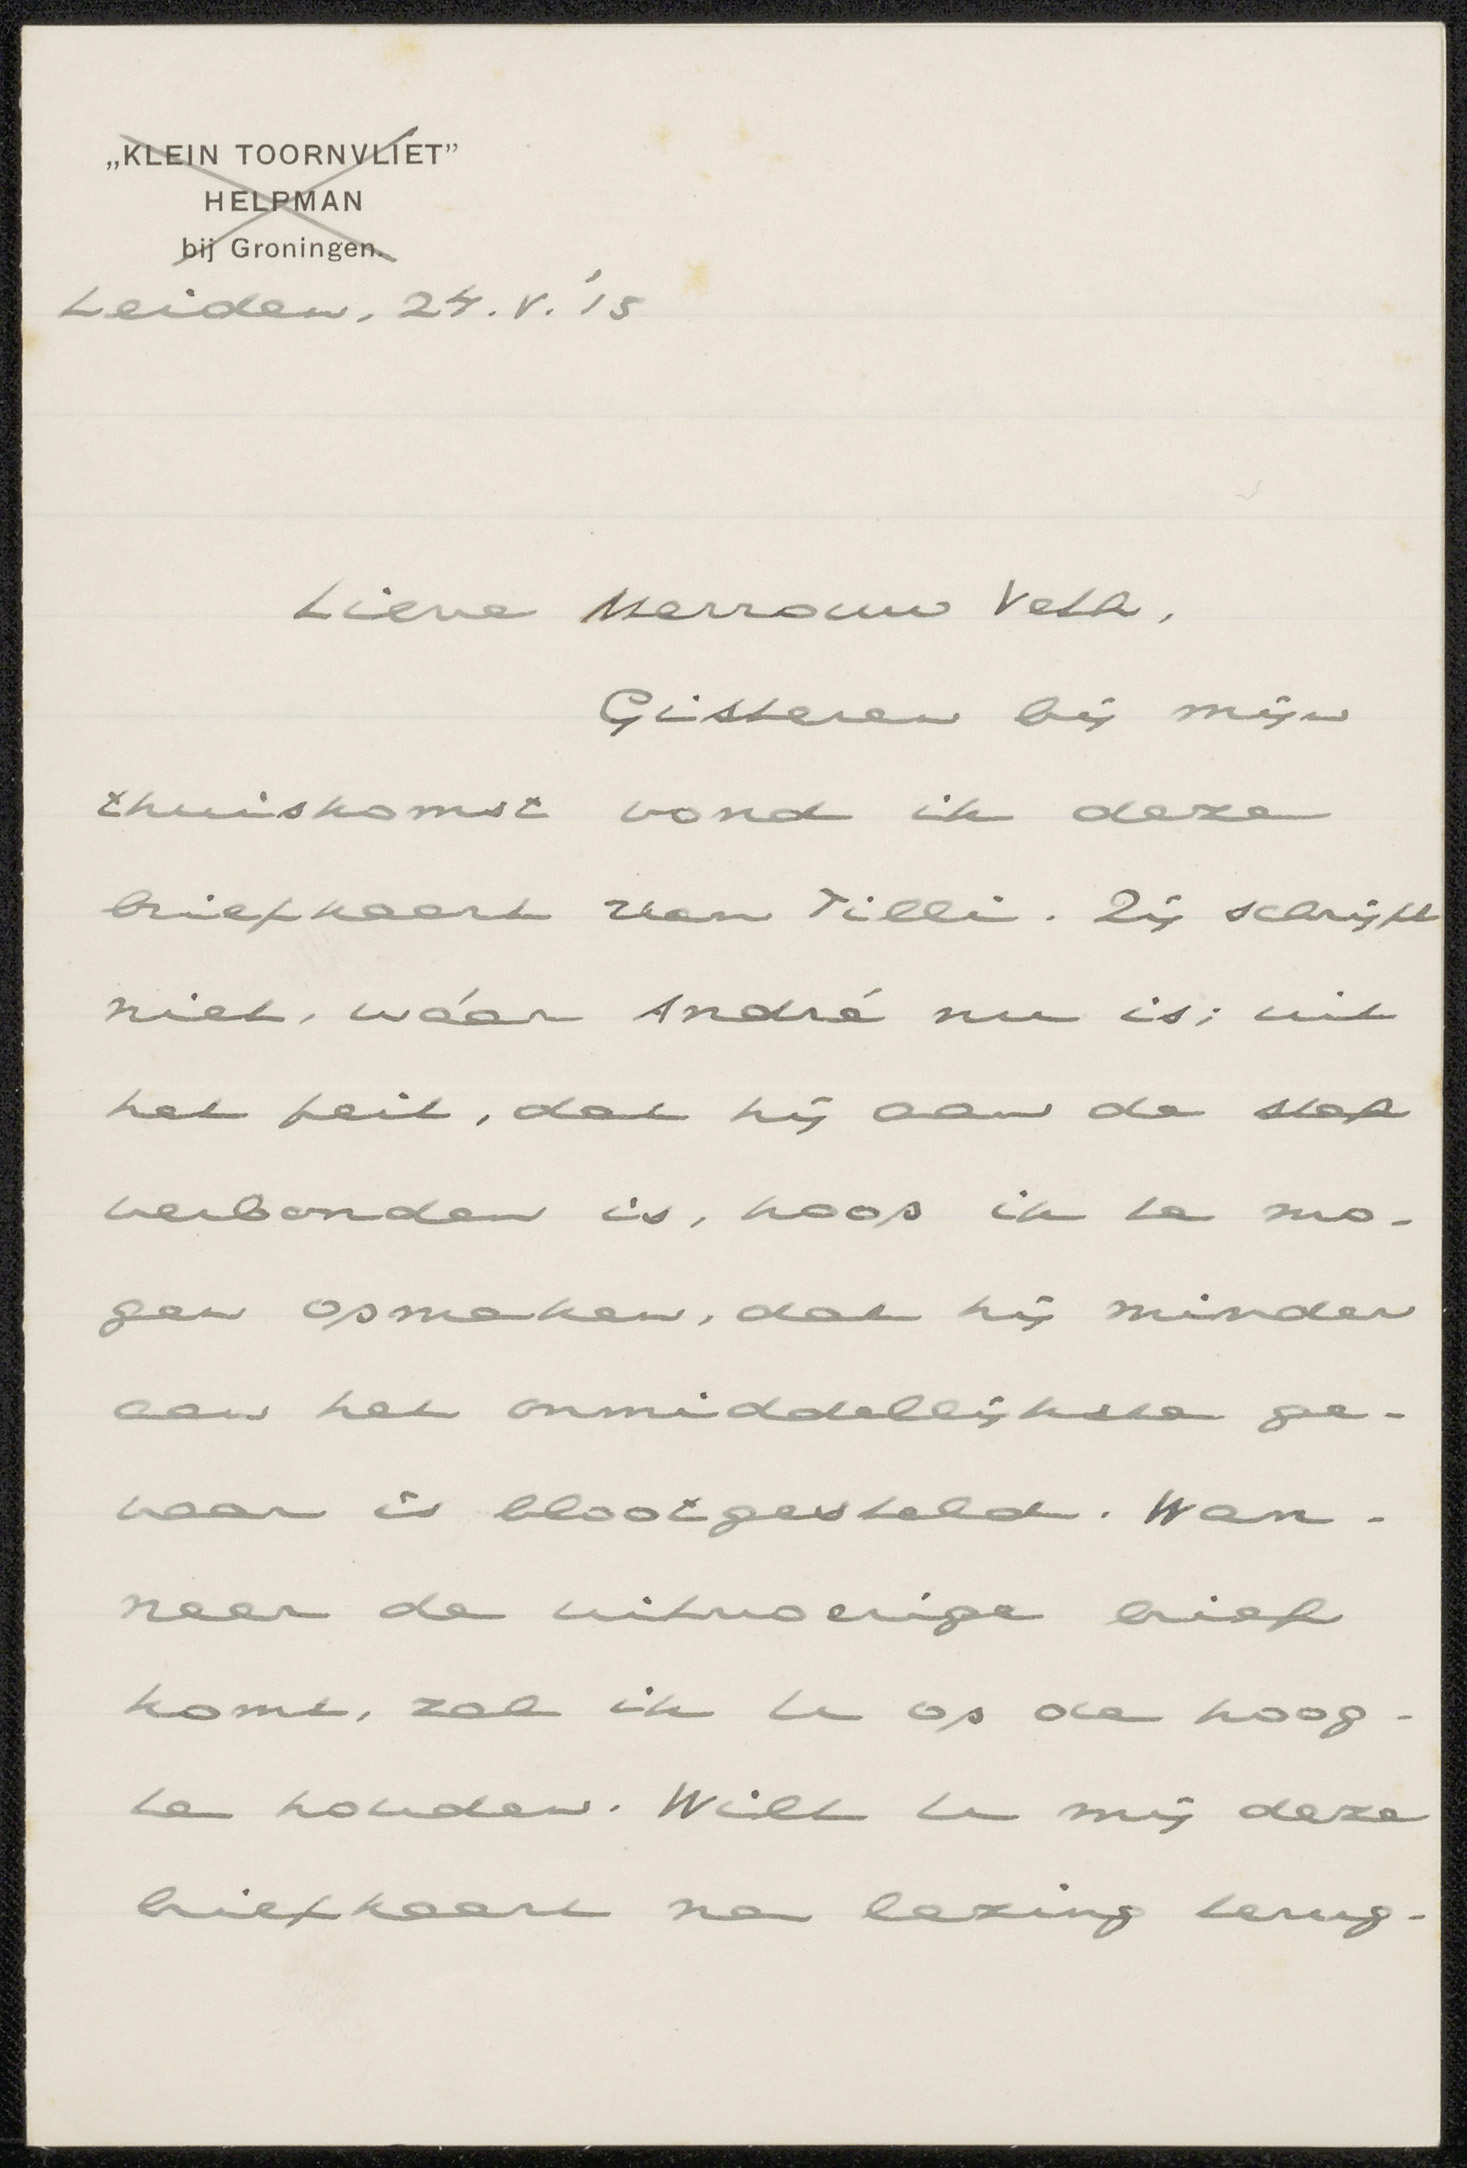 „KLEIN TOORNVLIET”
HELPMAN
bij Groningen.
Leiden, 24.V.'15
Lieve Mevrouw Veth,
Gisteren bij mijn
thuiskomst vond ik deze
briefkaart van Tilli. Zij schrijft
niet, wáár André nu is; uit
het feit, dat hij aan de staf
verbonden is, hoop ik te mo-
gen opmaken, dat hij minder
aan het onmiddellijkste ge-
vaar is blootgesteld. Wan-
neer de uitvoerige brief
komt, zal ik U op de hoog-
te houden. Wilt U mij deze
briefkaart na lezing terug-